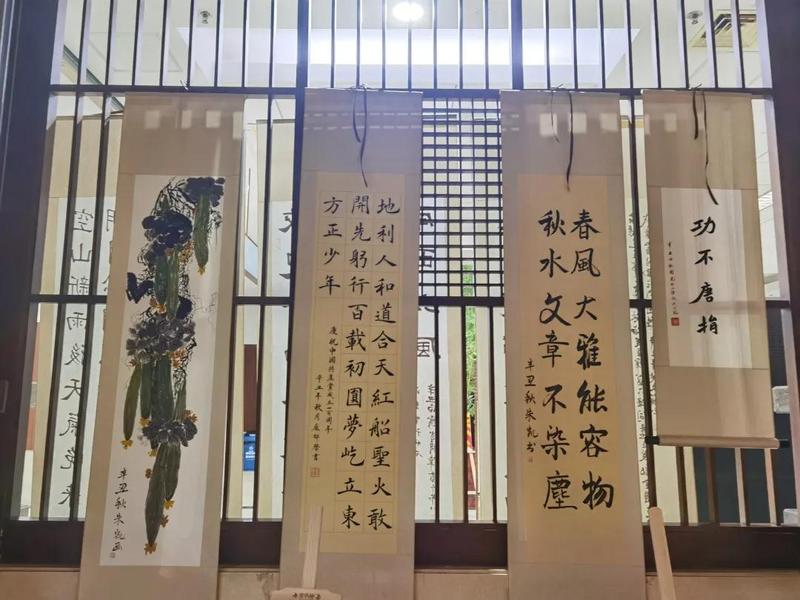 空山新雨後天氣晚來
辛丑秋朱凯画
地利人和道合天紅船聖火敢
開先躬行百載初圓夢屹立東
方正少年
慶祝中國共產黨成立一百周年
辛丑年秋月
春風大雅能容物
秋水文章不染塵
辛丑秋朱凯书
功不唐捐